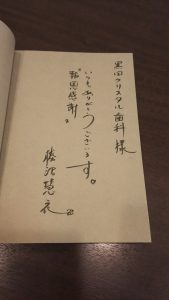 黒田クリスタル歯科 様
いつもありがとうございます。
"報恩感謝"
勝沢慧衣